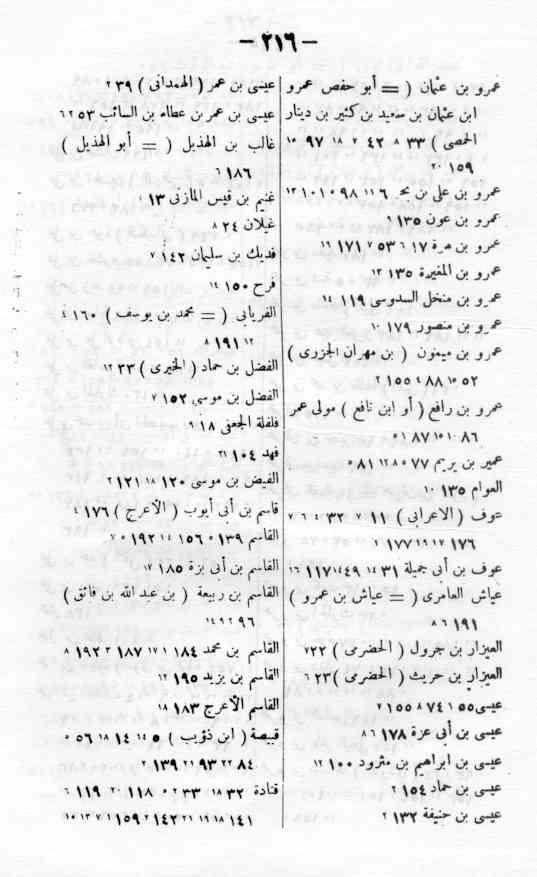 — ٢١٦ —
عمرو بن عثمان ( = أبو حفص عمرو
ابن عثمان بن سعيد بن كثير بن دينار
الحمصى ) ٣٣ ٨ ٤٢ ٢ ١٨ ٩٧ ١٣
١٥٩ ٢٠
عمرو بن على بن بحر ٦ ١١ ٩٨ ٥ ١٠١ ١٣
عمرو بن عون ١٣٥ ١
عمرو بن مرة ١٧ ٦ ٥٣ ٧ ١٧١ ١٩
عمرو بن المغيرة ١٣٥ ١٢
عمرو بن منخل السدوسى ١١٩ ١٤
عمرو بن منصور ١٧٩ ١٠
عمرو بن ميمون ( بن مهران الجزرى )
٥٢ ١٥ ٨٨ ٤ ١٥٥ ٢
عمرو بن رافع ( أو ابن نافع ) مولى عمر
٨٦ ١٠ ١٥ ٨٧ ١ ٥
عمير بن يريم ٧٧ ١٢ ٥ ٨ ٨١ ٥
العوام ١٣٥ ١٠
عوف ( الاعرابى ) ١١ ٧ ٣٢ ٤ ٦ ٧
١٧٦ ١٧ ١٩ ١٧٧ ٢
عوف بن أبى جميلة ٣١ ١٤ ٤٩ ١٤ ١١٧ ١٦
عياش العامرى ( = عياش بن عمرو )
١٩١ ٦ ٨
العيزار بن جرول ( الحضرمى ) ٢٢ ٧
العيزار بن حريث ( الحضرمى ) ٢٣ ٦
عيسى ٥٥ ١ ٧٤ ٨ ١٥٥ ٢
عيسى بن أبى عزة ١٧٨ ٦ ٨
عيسى بن ابراهيم بن مثرود ١٠٠ ١٢
عيسى بن حماد ١٥٤ ٢
عيسى بن حنيفة ١٣٢ ٢
عيسى بن عمر ( الهمدانى ) ٣٩ ٢
عيسى بن عمر بن عطاء بن السائب ٥٣ ٢ ٦
غالب بن الهذيل ( = أبو الهذيل )
١٨٦ ٦
غنيم بن قيس المازنى ١٣ ١
غيلان ٢٤ ٨
فديك بن سليمان ١٤٢ ٧
فرح ١٥٠ ١٤
الفريابى ( = محمد بن يوسف ) ١٦٠ ٤
١٢ ١٩١ ٨
الفضل بن حماد ( الخيرى ) ٣٣ ١٢
الفضل بن موسى ١٥٢ ٧
فلفلة الجعفى ١٨ ٩
فهد ١٠٤ ٢١
الفيض بن موسى ١٢٠ ١٨ ١٢١ ٢
قاسم بن أبى أيوب ( الأعرج ) ١٧٦ ٤
القاسم ١٣٩ ٥ ١٥٦ ١٤ ١٩٢ ٥ ٧
القاسم بن أبى بزة ١٨٥ ١٧
القاسم بن ربيعة ( بن عبد الله بن فائق )
٩٦ ٢ ٩ ١٤
القاسم بن محمد ١٨٤ ١ ١٧ ١٨٧ ٣ ١٩٢ ٨
القاسم بن يزيد ١٩٥ ١٢
القاسم الأعرج ١٨٣ ١٨
قبيصة ( ابن ذؤيب ) ٥ ١٤ ١٤ ١٨ ٥٦ ٥
٨٤ ٢٢ ٩٣ ٢١ ١٣٩ ٢
قتادة ٣٢ ١٨ ٣٣ ٢ ٥ ١١٨ ٢٠ ١١٩ ٦
١٤١ ١٨ ١٩ ٢١ ١٤٢ ٢ ١٥٩ ٢ ١٠ ١٣ ١٥